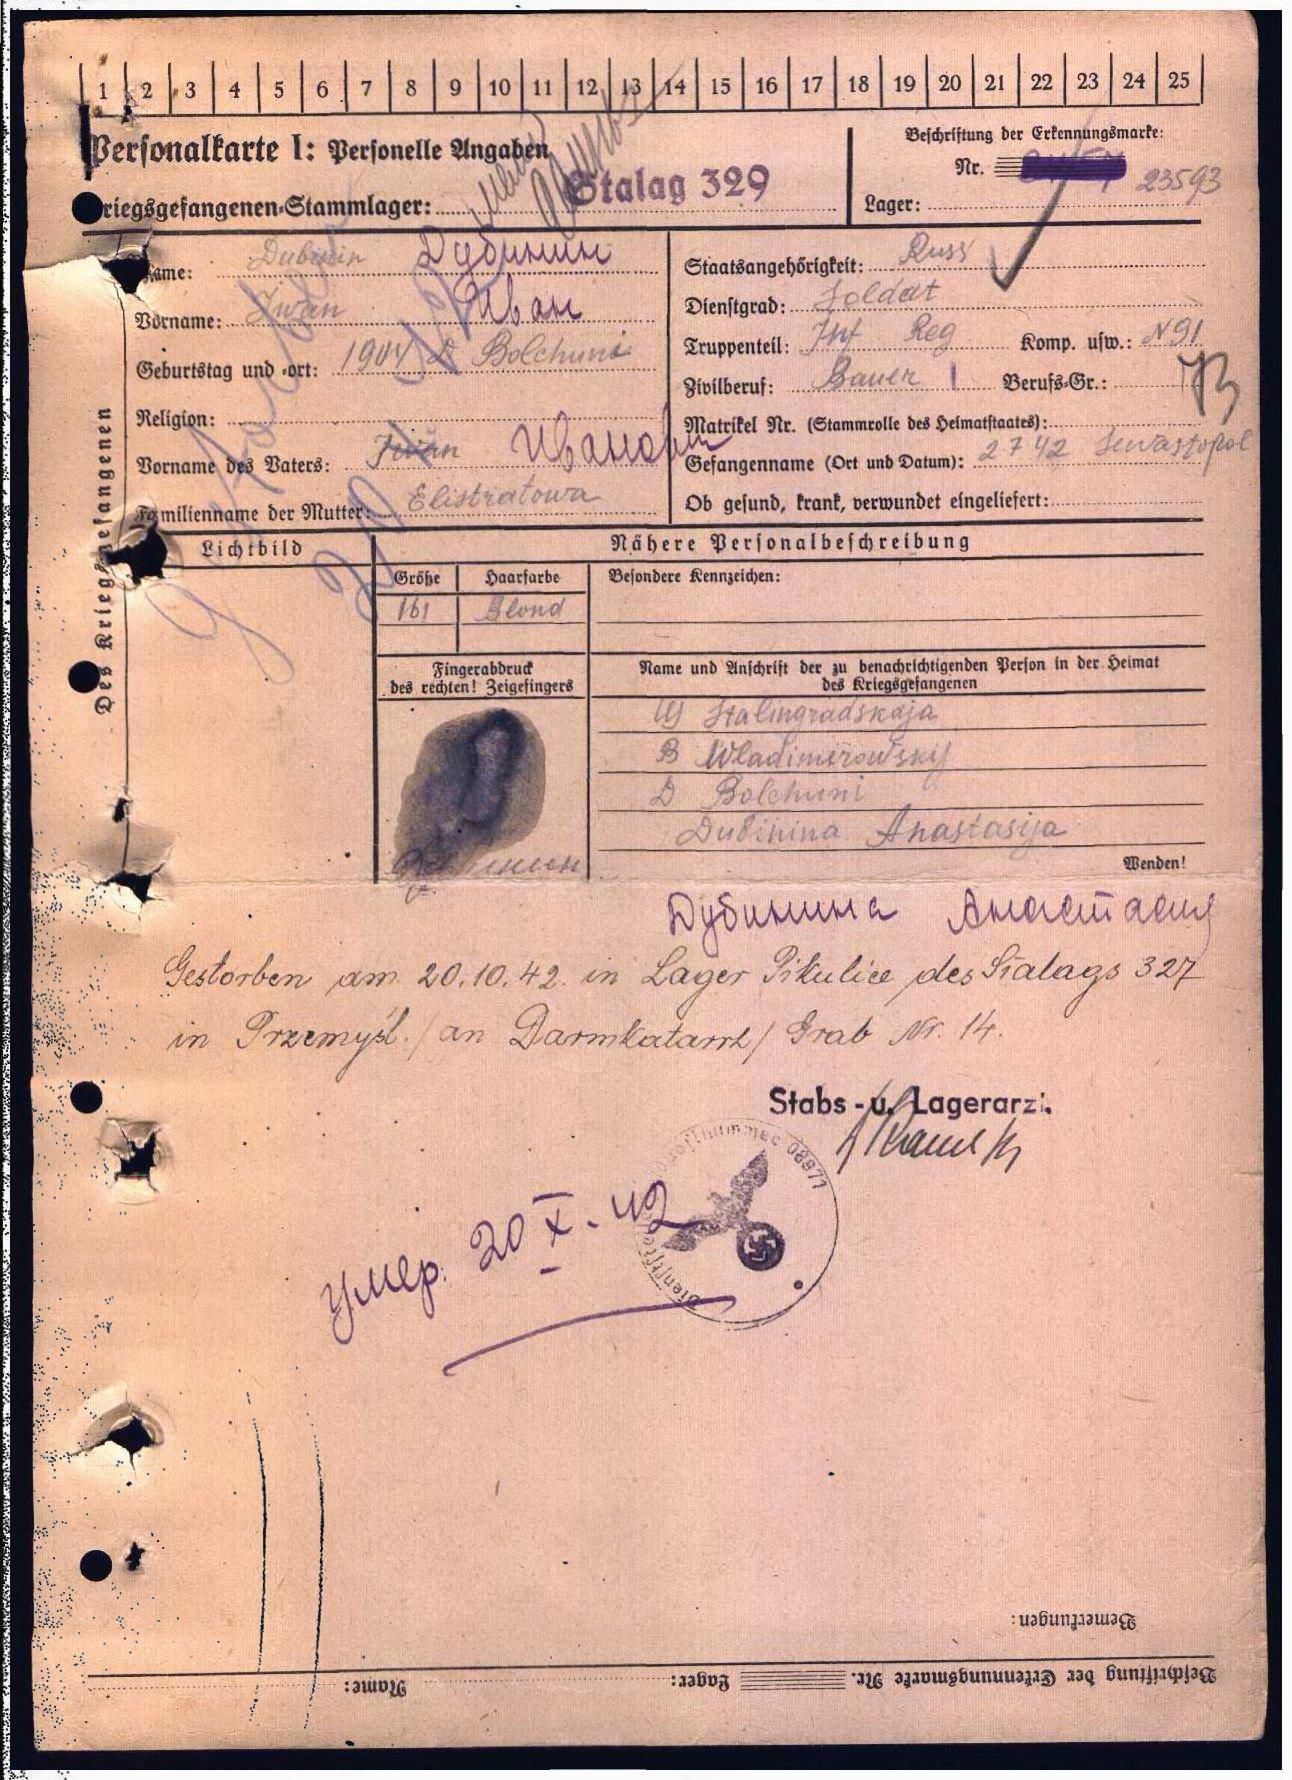 1 2 3 4 5 6 7 8 9 10 11 12 13 14 15 16 17 18 19 20 21 22 23 24 25
Personalkarte I: Personelle Angaben
riegsgefangenen-Stammlager: Stalag 329
Beschriftung der Erkennungsmarke:
Nr. 23593
Lager:
Des Kriegsgefangenen
ame: Dubinin Дубинин
Vorname: Iwan Иван
Geburtstag und -ort: 1904 D Bolchuni
Religion:
Vorname des Vaters: Iwan Иванович
Familienname der Mutter: Elistratowa
Staatsangehörigkeit: Russ
Dienstgrad: Soldat
Truppenteil: Inf Reg Komp. usw.: N 91
Zivilberuf: Bauer Berufs-Gr.:
Matrikel Nr. (Stammrolle des Heimatstaates):
Gefangenname (Ort und Datum): 2 7 42 Sewastopol
Ob gesund, krank, verwundet eingeliefert:
gestorben
20 X 42
Lichtbild
Nähere Personalbeschreibung
Größe Haarfarbe Besondere Kennzeichen:
161 Blond
Fingerabdruck
des rechten! Zeigefingers
Name und Anschrift der zu benachrichtigenden Person in der Heimat
des Kriegsgefangenen
Stalingradskaja
B Wladimirowskij
D Bolchuni
Dubinina Anastasija
Wenden!
Дубинина Анастасия
Gestorben am 20.10.42. in Lager Pikulice des Stalags 327
in Przemyśl. / an Darmkatarrh / Grab Nr. 14.
Stabs- u. Lagerarzt.
Feldpostnummer 08971
Dienststelle
умер. 20 X. 42
Bemerkungen:
Beschriftung der Erkennungsmarke Nr. Lager: Name: